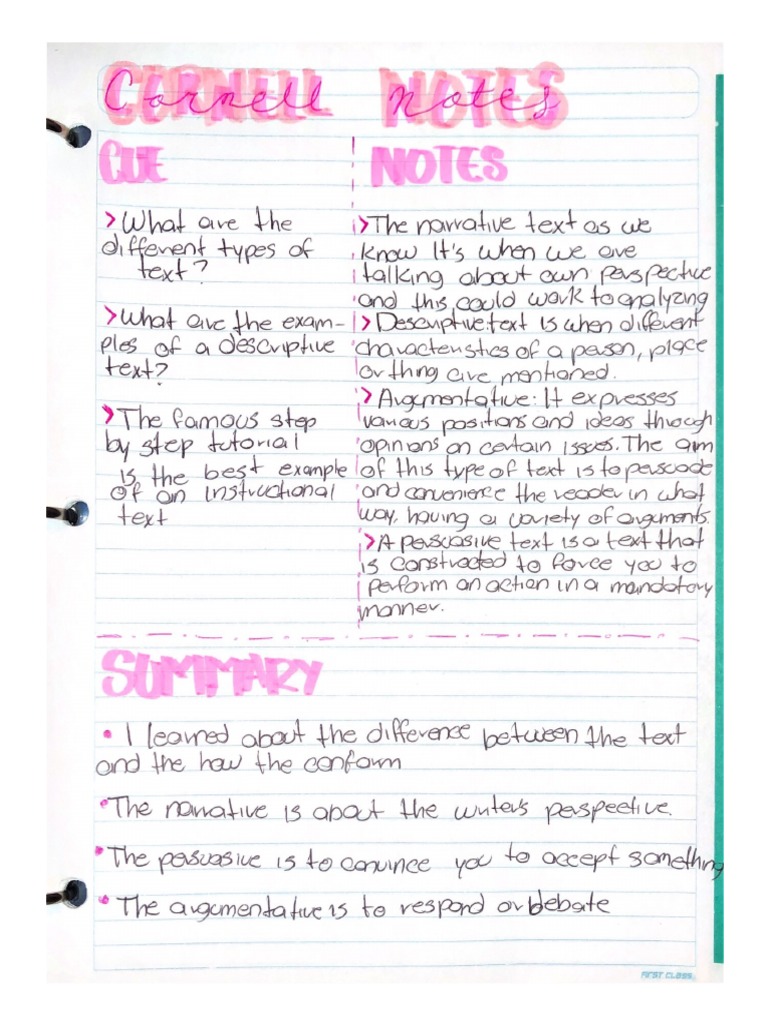 Cornell Notes
CUE
> What are the
different types of
text?
> What are the exam-
ples of a descriptive
text?
> The famous step
by step tutorial
is the best example
of an instructional
text
NOTES
> The narrative text as we
know It's when we are
talking about own perspective
and this could work to analyzing
> Descriptive: text is when different
characteristics of a person, place
or thing are mentioned.
> Argumentative: It expresses
various positions and ideas through
opinions on certain issues. The aim
of this type of text is to persuade
and convenience the reader in what
way, having a variety of arguments.
> A persuasive text is a text that
is constructed to force you to
perform an action in a mandatory
manner.
SUMMARY
• I learned about the difference between the text
and the how the conform
• The narrative is about the writer's perspective.
• The persuasive is to convince you to accept something
• The argumentative is to respond or debate
FIRST CLASS